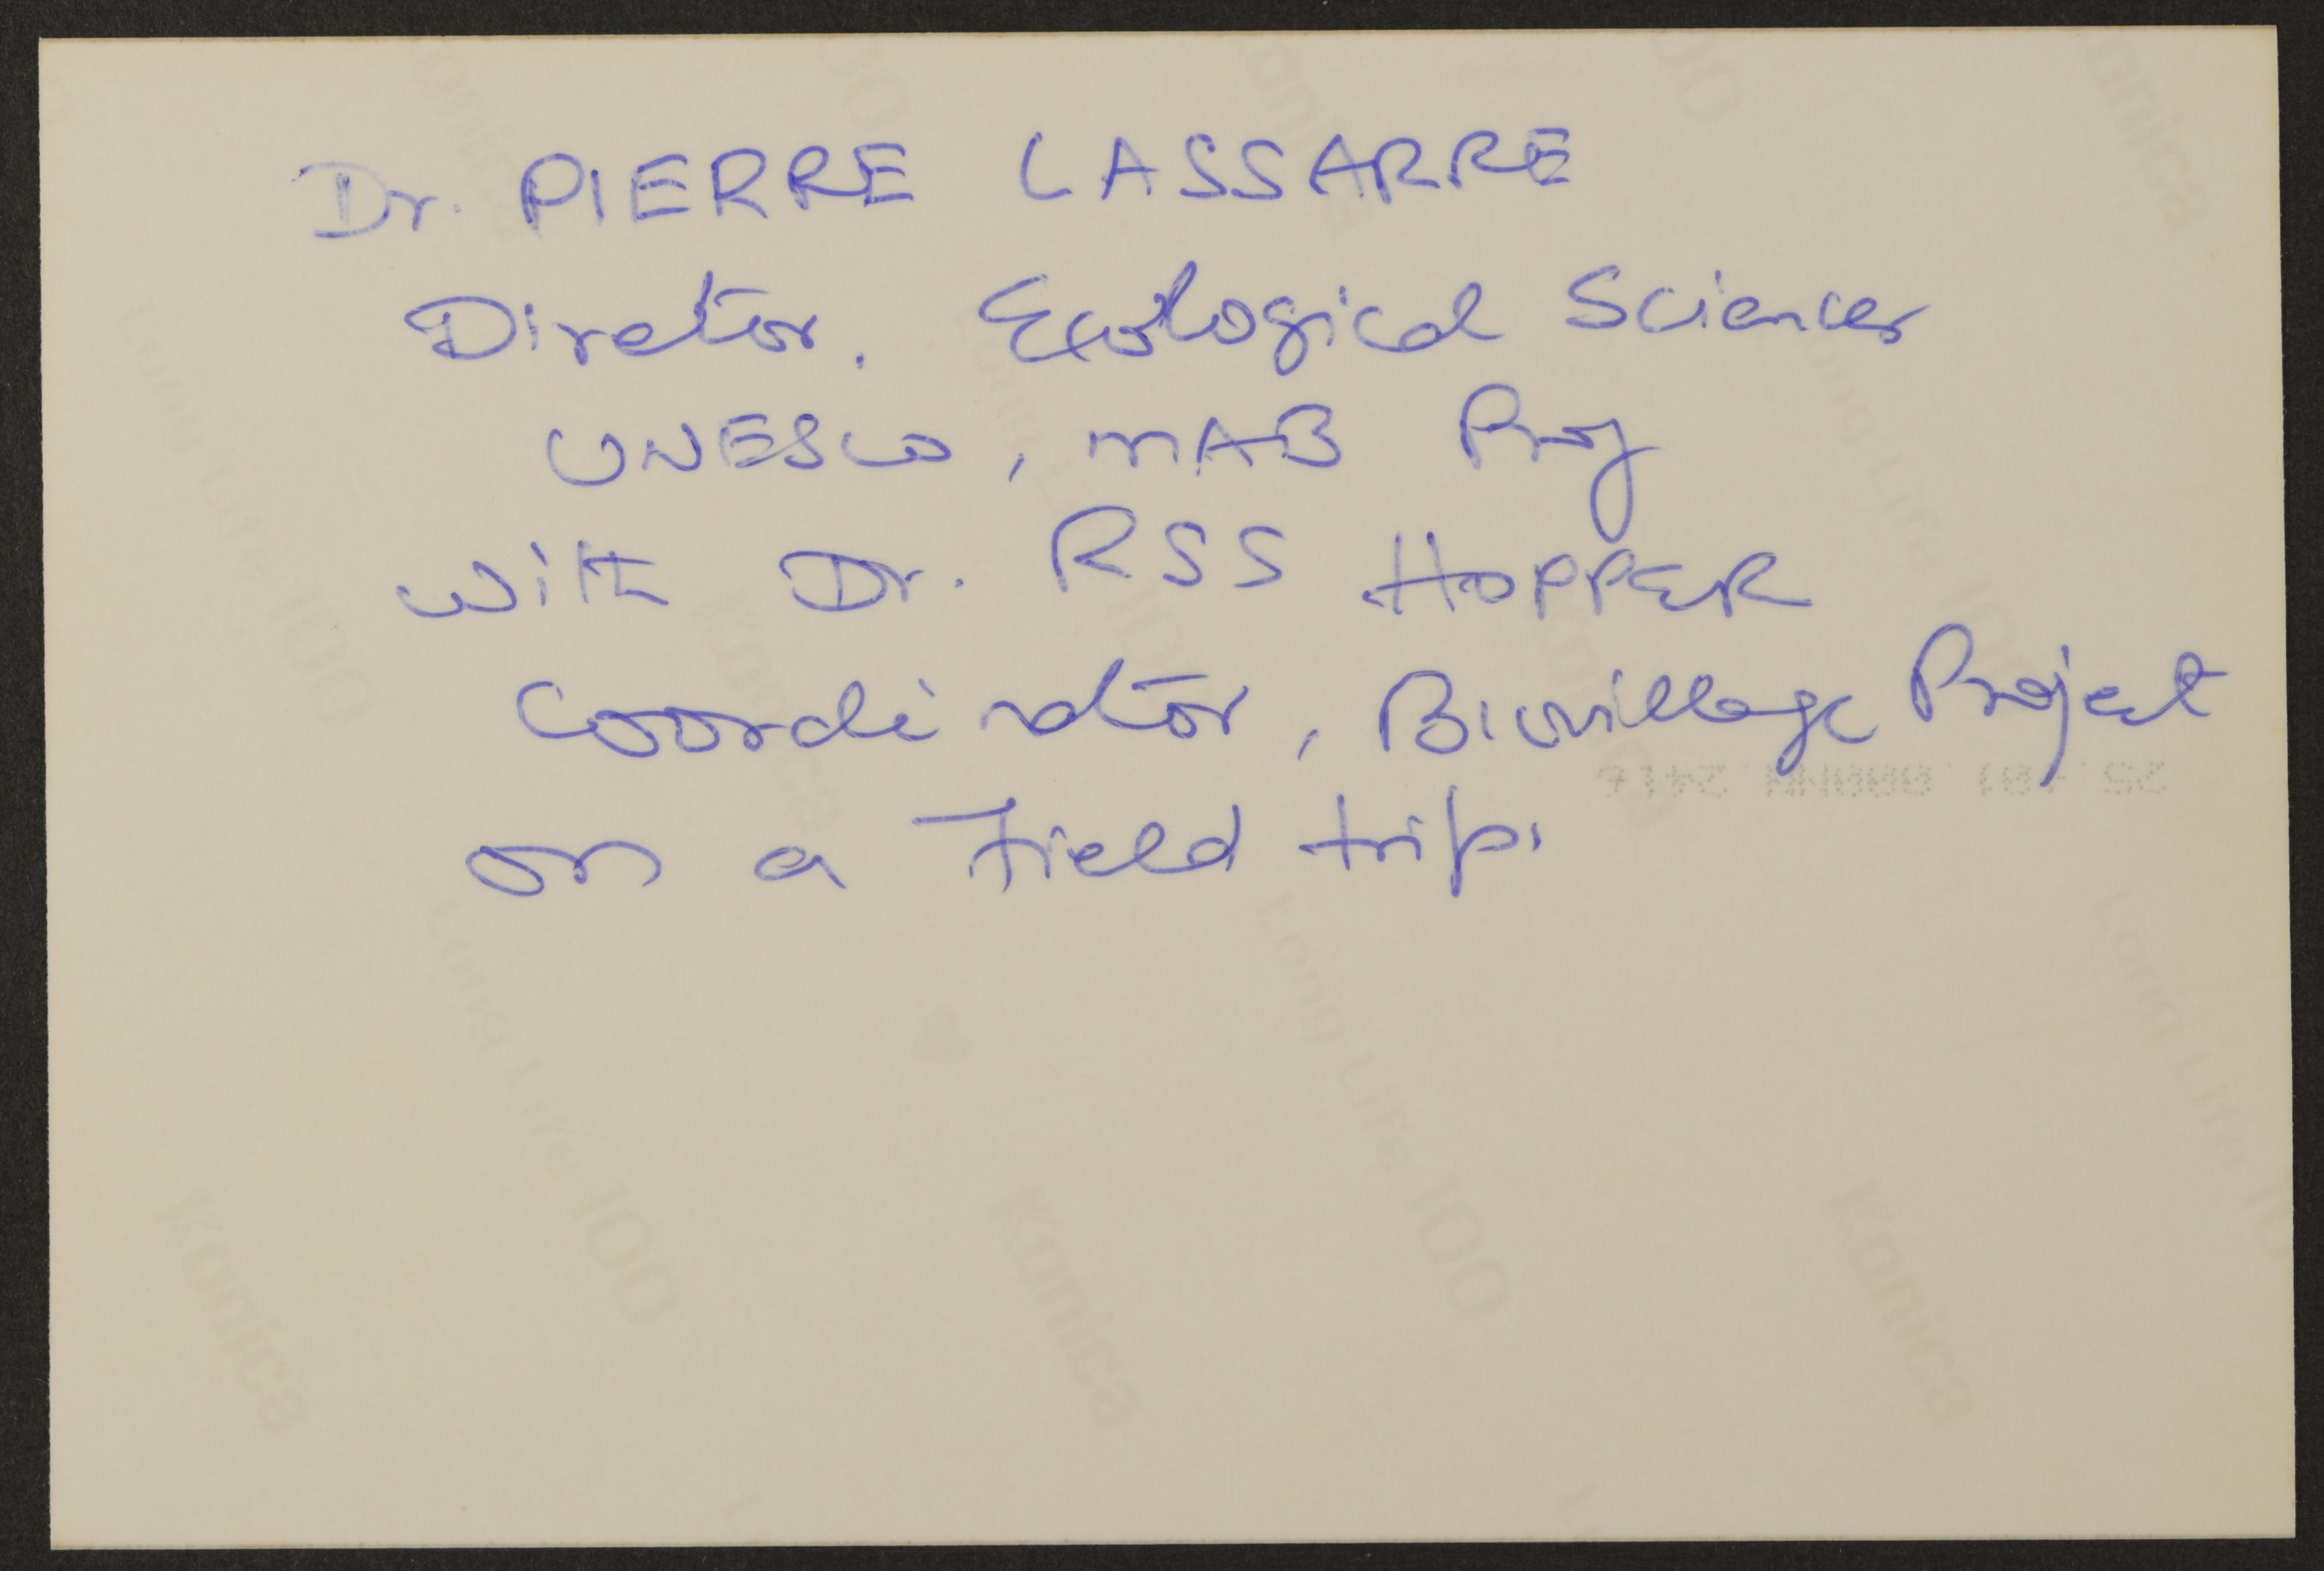 Dr. PIERRE LASSARRE
Diretor. Ecological Sciences
UNESCO, MAB Proj
with Dr. RSS HOPPER
Coordinator, Biovillage Project
on a Field trip.
Konica
Long Life 100